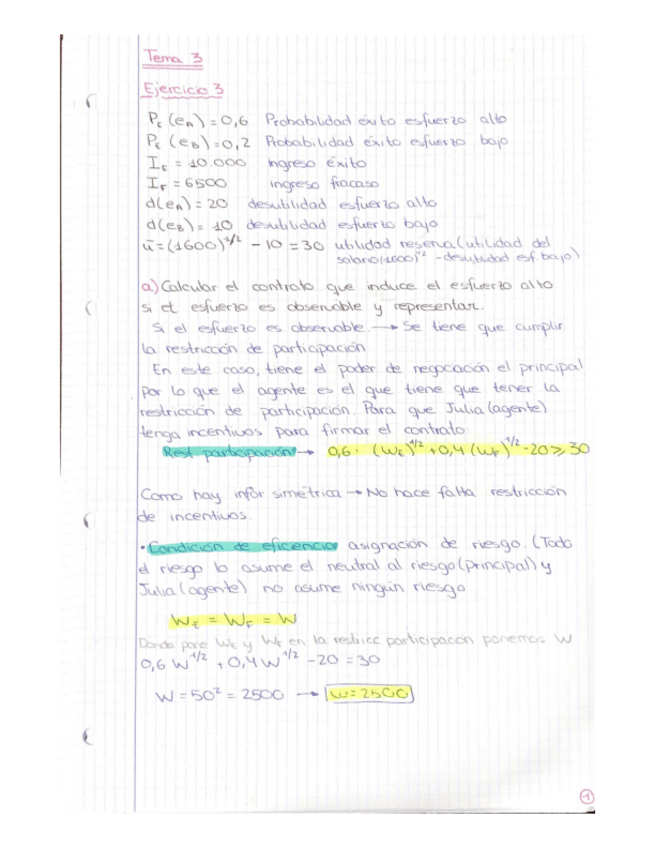 Tema 3
Ejercicio 3
P_E (e_A) = 0,6 Probabilidad éxito esfuerzo alto
P_E (e_B) = 0,2 Probabilidad éxito esfuerzo bajo
I_E = 10.000 ingreso éxito
I_F = 6500 ingreso fracaso
d(e_A) = 20 desutilidad esfuerzo alto
d(e_B) = 10 desutilidad esfuerzo bajo
ū = (1600)^1/2 - 10 = 30 utilidad reserva (utilidad del
salario (1600)^1/2 - desutilidad esf. bajo)
a) Calcular el contrato que induce el esfuerzo alto
si el esfuerzo es observable y representar.
Si el esfuerzo es observable → Se tiene que cumplir
la restricción de participación
En este caso, tiene el poder de negociación el principal
por lo que el agente es el que tiene que tener la
restricción de participación. Para que Julia (agente)
tenga incentivos para firmar el contrato:
Rest participación → 0,6 · (W_E)^1/2 + 0,4 (W_F)^1/2 - 20 ≥ 30
Como hay infor simétrica → No hace falta restricción
de incentivos.
· Condición de eficiencia asignación de riesgo. (Todo
el riesgo lo asume el neutral al riesgo (principal) y
Julia (agente) no asume ningún riesgo
W_E = W_F = W
Donde pone W_E y W_F en la restricc participación ponemos W
0,6 W^1/2 + 0,4 W^1/2 - 20 = 30
W = 50² = 2500 → W = 2500
1